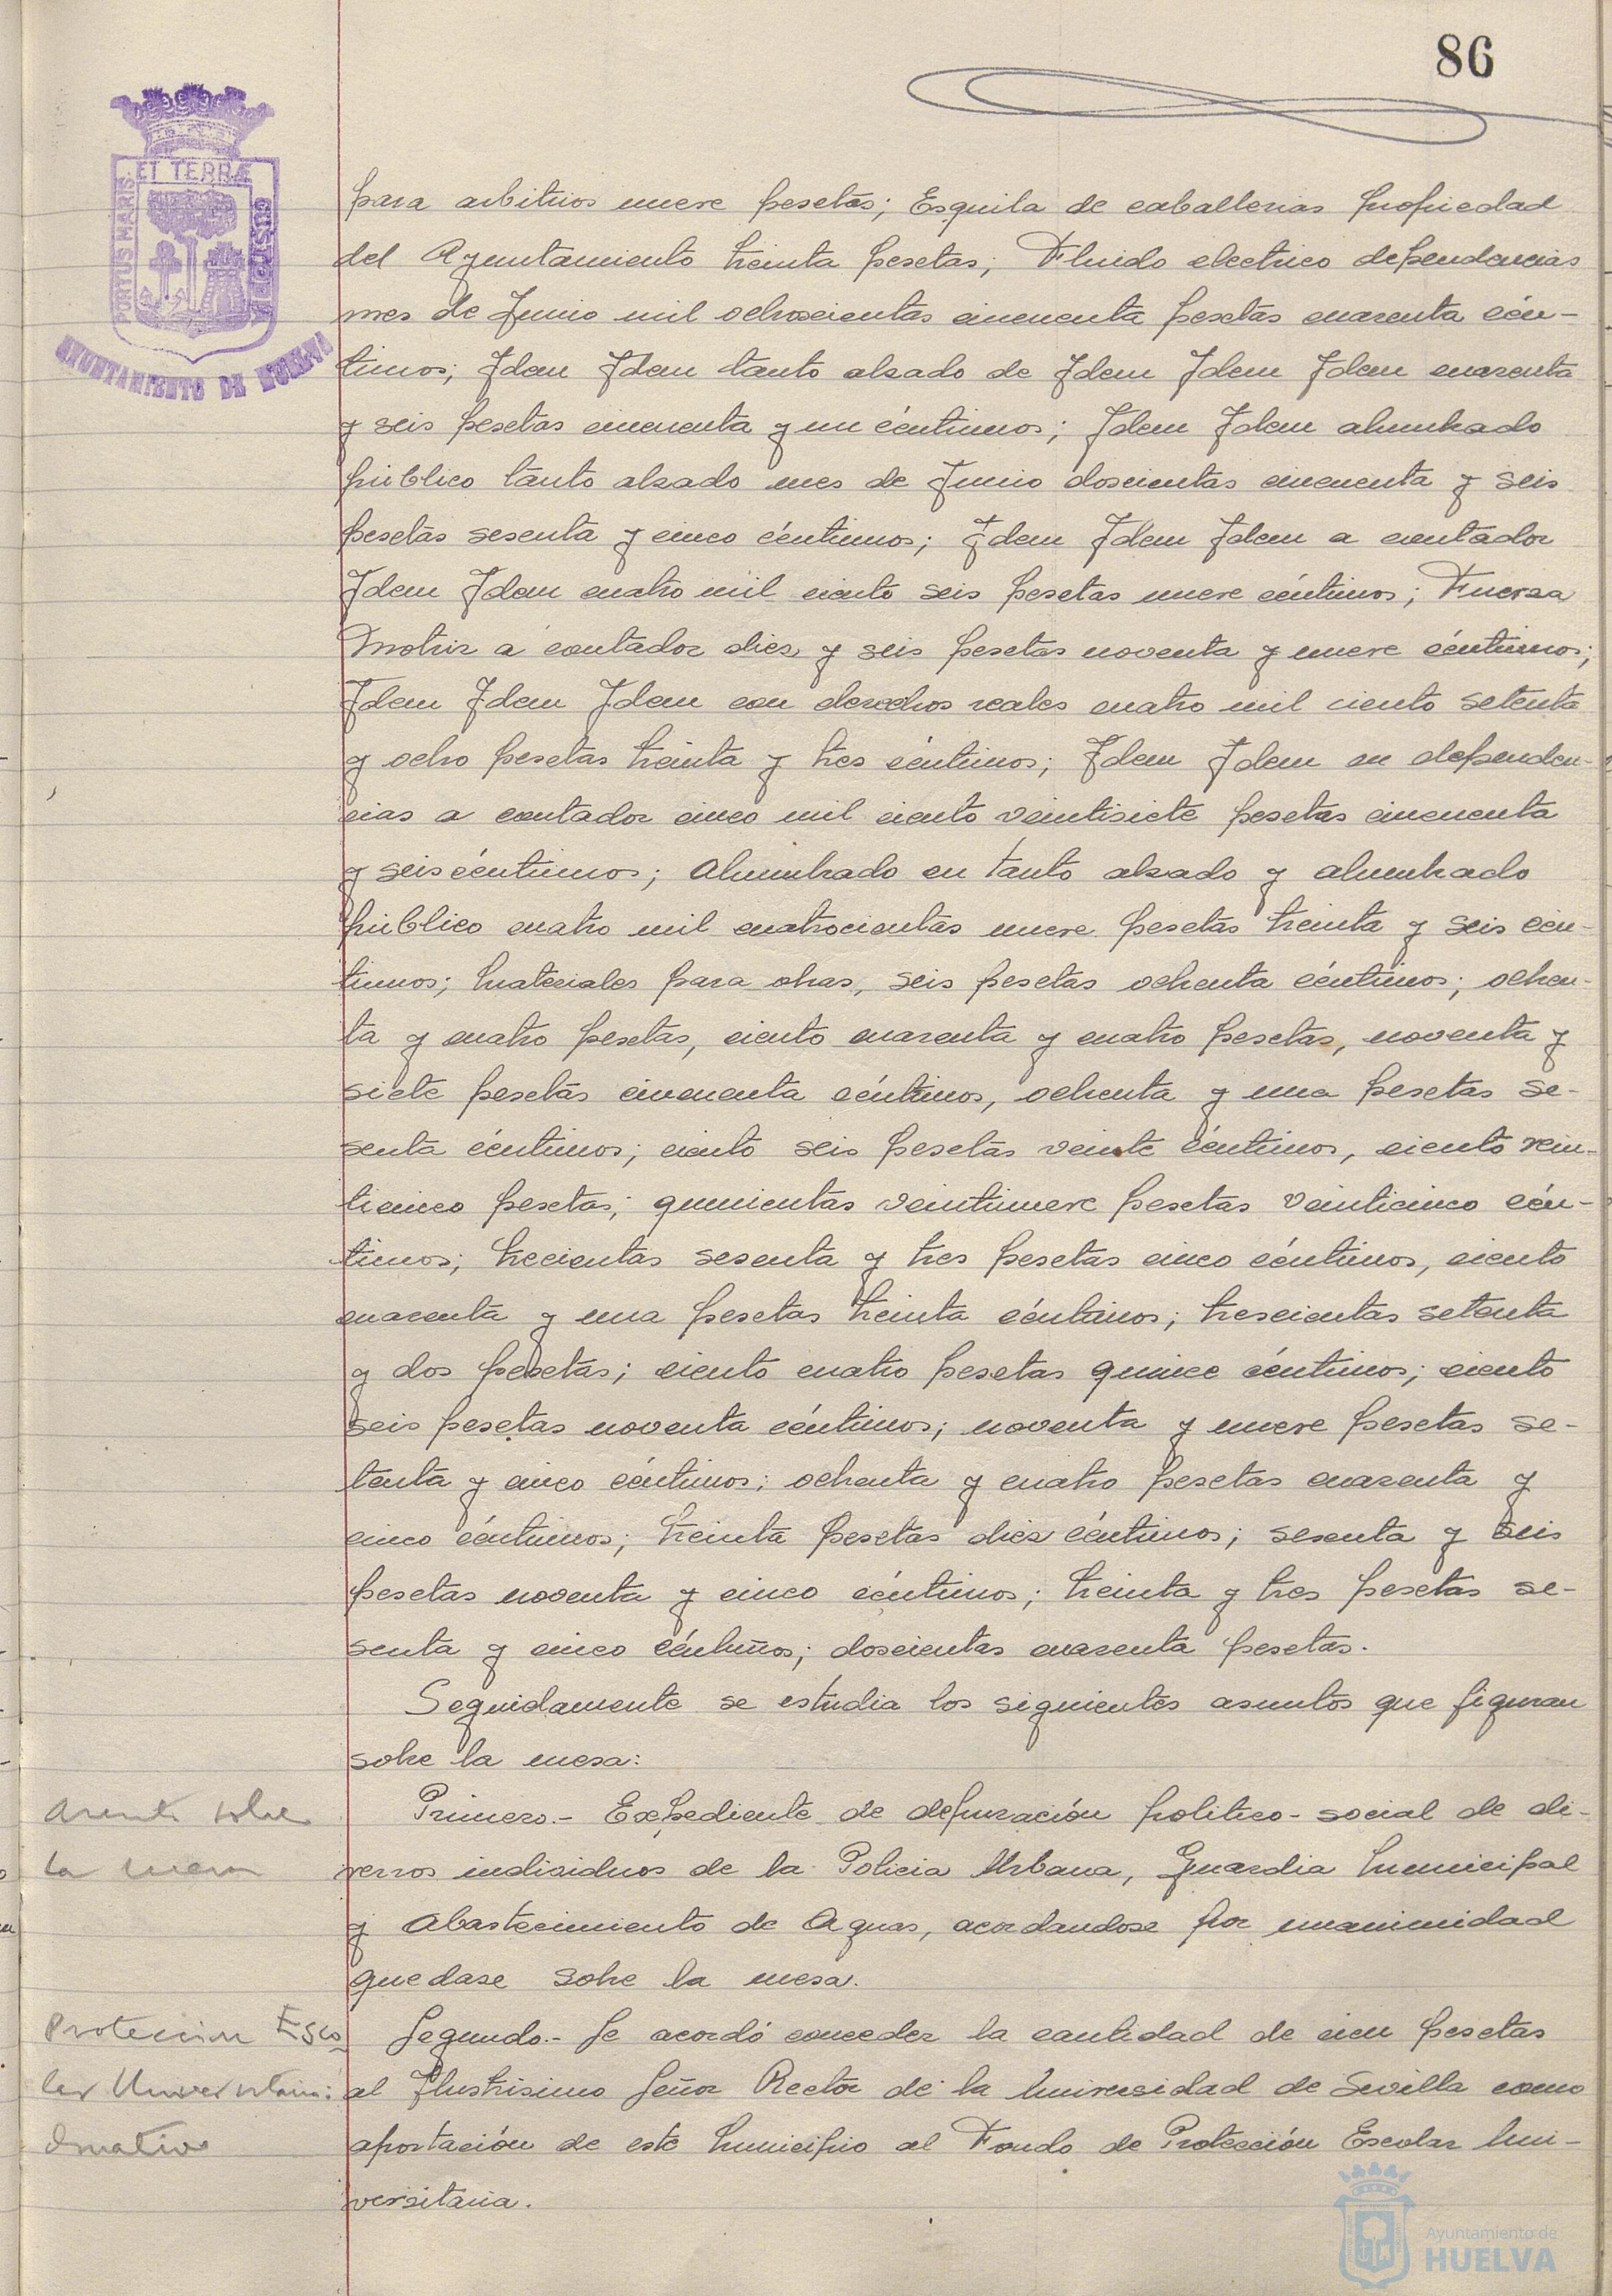 86
PORTUS MARIS ET TERRÆ CUSTODIA
AYUNTAMIENTO DE HUELVA
para arbitrios nueve pesetas; Esquila de caballerias propiedad
del Ayuntamiento treinta pesetas; Fluido electrico dependencias
mes de Junio mil ochoscientas cincuenta pesetas cuarenta cén-
timos; Idem Idem tanto alzado de Idem Idem Idem cuarenta
y seis pesetas cincuenta y un céntimos; Idem Idem alumbrado
público tanto alzado mes de Junio doscientas cincuenta y seis
pesetas sesenta y cinco céntimos; Idem Idem Idem a contador
Idem Idem cuatro mil ciento seis pesetas nueve céntimos; Fuerza
Motriz a contador diez y seis pesetas noventa y nueve céntimos;
Idem Idem Idem con derechos reales cuatro mil ciento setenta
y ocho pesetas treinta y tres céntimos; Idem Idem en dependen-
cias a contador cinco mil ciento veintisiete pesetas cincuenta
y seis céntimos; Alumbrado en tanto alzado y alumbrado
público cuatro mil cuatrocientas nueve pesetas treinta y seis cén-
timos; Materiales para obras, seis pesetas ochenta céntimos; ochen-
ta y cuatro pesetas, ciento cuarenta y cuatro pesetas, noventa y
siete pesetas cincuenta céntimos, ochenta y una pesetas se-
senta céntimos; ciento seis pesetas veinte céntimos, ciento vein-
ticinco pesetas; quinientas veintinueve pesetas veinticinco cén-
timos; trecientas sesenta y tres pesetas cinco céntimos, ciento
cuarenta y una pesetas treinta céntimos; trescientas setenta
y dos pesetas; ciento cuatro pesetas quince céntimos; ciento
seis pesetas noventa céntimos; noventa y nueve pesetas se-
tenta y cinco céntimos; ochenta y cuatro pesetas cuarenta y
cinco céntimos; treinta pesetas diez céntimos; sesenta y seis
pesetas noventa y cinco céntimos; treinta y tres pesetas se-
senta y cinco céntimos; doscientas cuarenta pesetas.
Seguidamente se estudia los siguientes asuntos que figuran
sobre la mesa:
Asunto sobre
la mesa
Primero.- Expediente de depuración politico-social de di-
versos individuos de la Policia Urbana, Guardia Municipal
y Abastecimiento de Aguas, acordandose por unanimidad
quedase sobre la mesa.
Proteccion Esco
lar Universitaria:
Donativo
Segundo.- Se acordó conceder la cantidad de cien pesetas
al Ilustrisimo Señor Rector de la Universidad de Sevilla como
aportación de este Municipio al Fondo de Protección Escolar Uni-
versitaria.
Ayuntamiento de
HUELVA